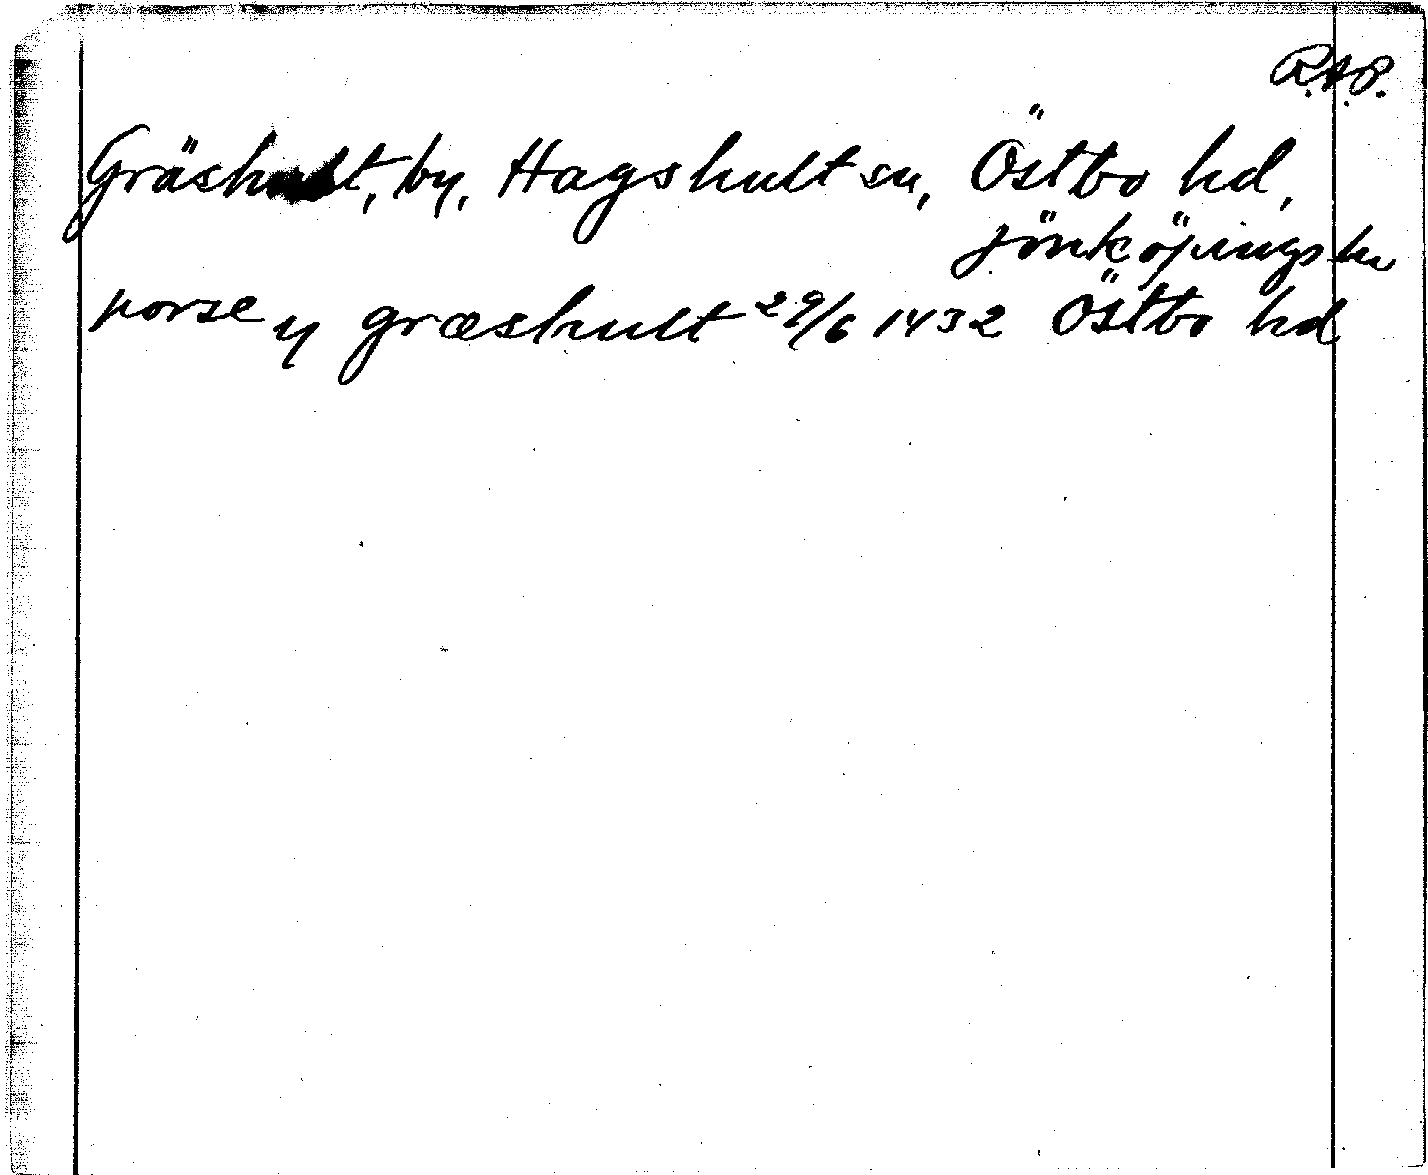 R.A.P.
Gräshult, by, Hagshult sn, Östbo hd,
Jönköpings ln
porse y græshult 29/6 1432 Östbo hd